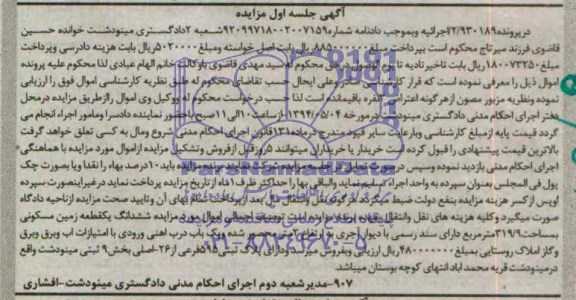 آگهی جلسه اول مزایده
درپرونده ۶۲/۹۳۰۱۸۹اجرائیه وبموجب دادنامه شماره ۹۲۰۹۹۷۱۸۰۰۲۰۰۷۱۵۹شعبه ۲دادگستری مینودشت خوانده حسین
قاضوی فرزند میرتاج محکوم است بپرداخت مبلغ ریال بابت اصل خواسته ومبلغ ۵۰۲۰۰۰۰ریال بابت هزینه دادرسی وپرداخت
مبلغ ۱۸۰۰۷۳۲۵۰ریال بابت تاخیر تادیه تا یوم الوصول درحق محکوم له سید مهدی قاضوی باوکالت خانم الهام عبادی لذا محکوم علیه پرونده
اموال ذیل را معرفی نموده است که قرار علی ایحال حسب تقاضای محکوم له طبق نظریه کارشناسی اموال فوق را ارزیابی
نموده ونظریه مزبور مصون ازهرگونه اعتراض باقیمانده است لذا حسب درخواست محکوم له ووکیل وی اموال رااز طریق مزایده درمحل
دفتر اجرای احکام مدنی دادگستری مینودشت درمورخه ۱۳۹۴/۰۵/۰۴ ازساعت ۱۰الی۱۱صبح باحضور نماینده دادسرا ومامور اجراء انجام می
گردد قیمت پایه ازمبلغ کارشناسی وبارعایت سایر قیود مندرج درماده ۱۳۱قانون اجرای احکام مدنی شروع ومال به کسی تعلق خواهد گرفت
بالاترین قیمت پیشنهادی را قبول کرده است خریدار یا خریداران میتوانند ۵روزقبل ازفروش وتشکیل مزایده ازاموال مورد مزایده با هماهنگی
اجرای احکام مدنی بازدید نموده وسپس درصورت تمایل درجلسه مزایده شرکت نمایند برنده مزایده باید ۱۰درصد بهاء را نقدا ویا بصورت چک
پول فی المجلس بعنوان سپرده به واحد اجراء تسلیم نماید والباقی بها را حداکثر ظرف ۱ماه ازتاریخ مزایده پرداخت نماید درغیراینصورت سپرده
اوپس ازکسر هزینه مزایده بنفع دولت ضبط میگردد هرگونه نقل و بهای آن وتایید صحت مزایده ازناحیه دادگاه
صورت میگیرد وکلیه هزینه های نقل وانتقال اموال مورد مزایده ششدانگ یکقطعه زمین مسکونی
بمساحت ۳۱۹/۹مترمربع دارای سند رسمی با دیوار آجری به ارتفاع ۲متر محصور شده ویک باب درب اهنی ورودی با امتیازات اب وبرق
وگاز املاک روستایی بمبلغ ۴۸۰۰۰۰۰۰۰ریال ارزیابی وبفروش میرسد دارای پلاک ثبتی ۵۹۵فرعی از۲۶-اصلی بخش۹ ثبتی مینودشت واقع
درمینودشت قریه محمد اباد انتهای کوچه بوستان میباشد.
۹۰۷-مدیرشعبه دوم اجرای احکام مدنی دادگستری مینودشت-افشاری